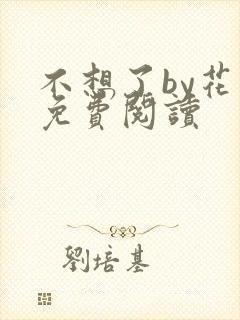 不想了by花
免費閱讀
劉培基